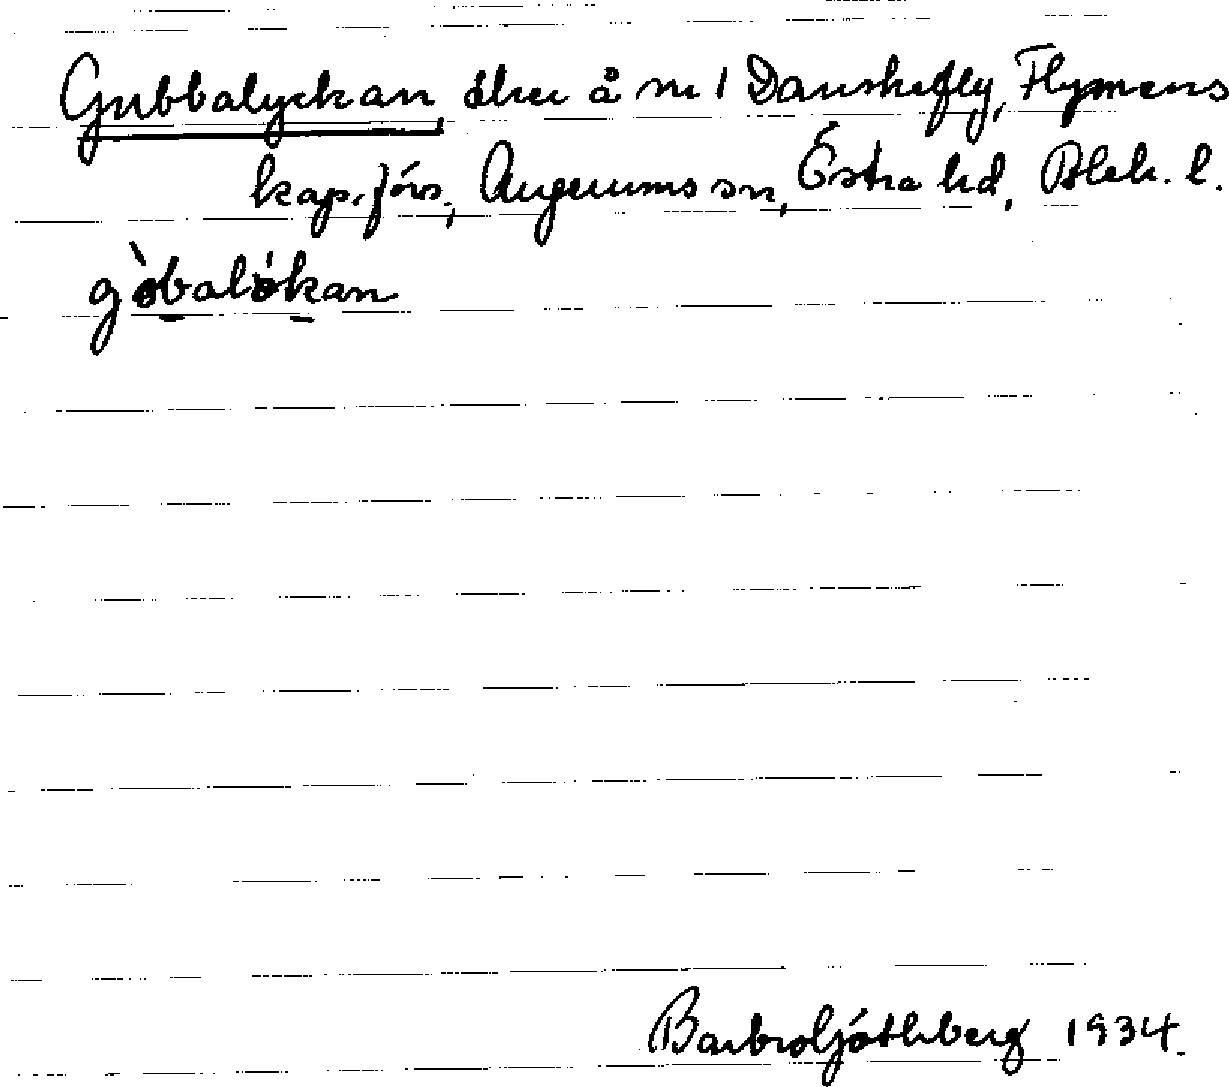 Gubbalyckan, åker å nr 1 Danskefly, Flymens
kap.förs., Augerums sn, Östra hd, Blek. l.
gòbalókan
Barbro Götlberg 1934.